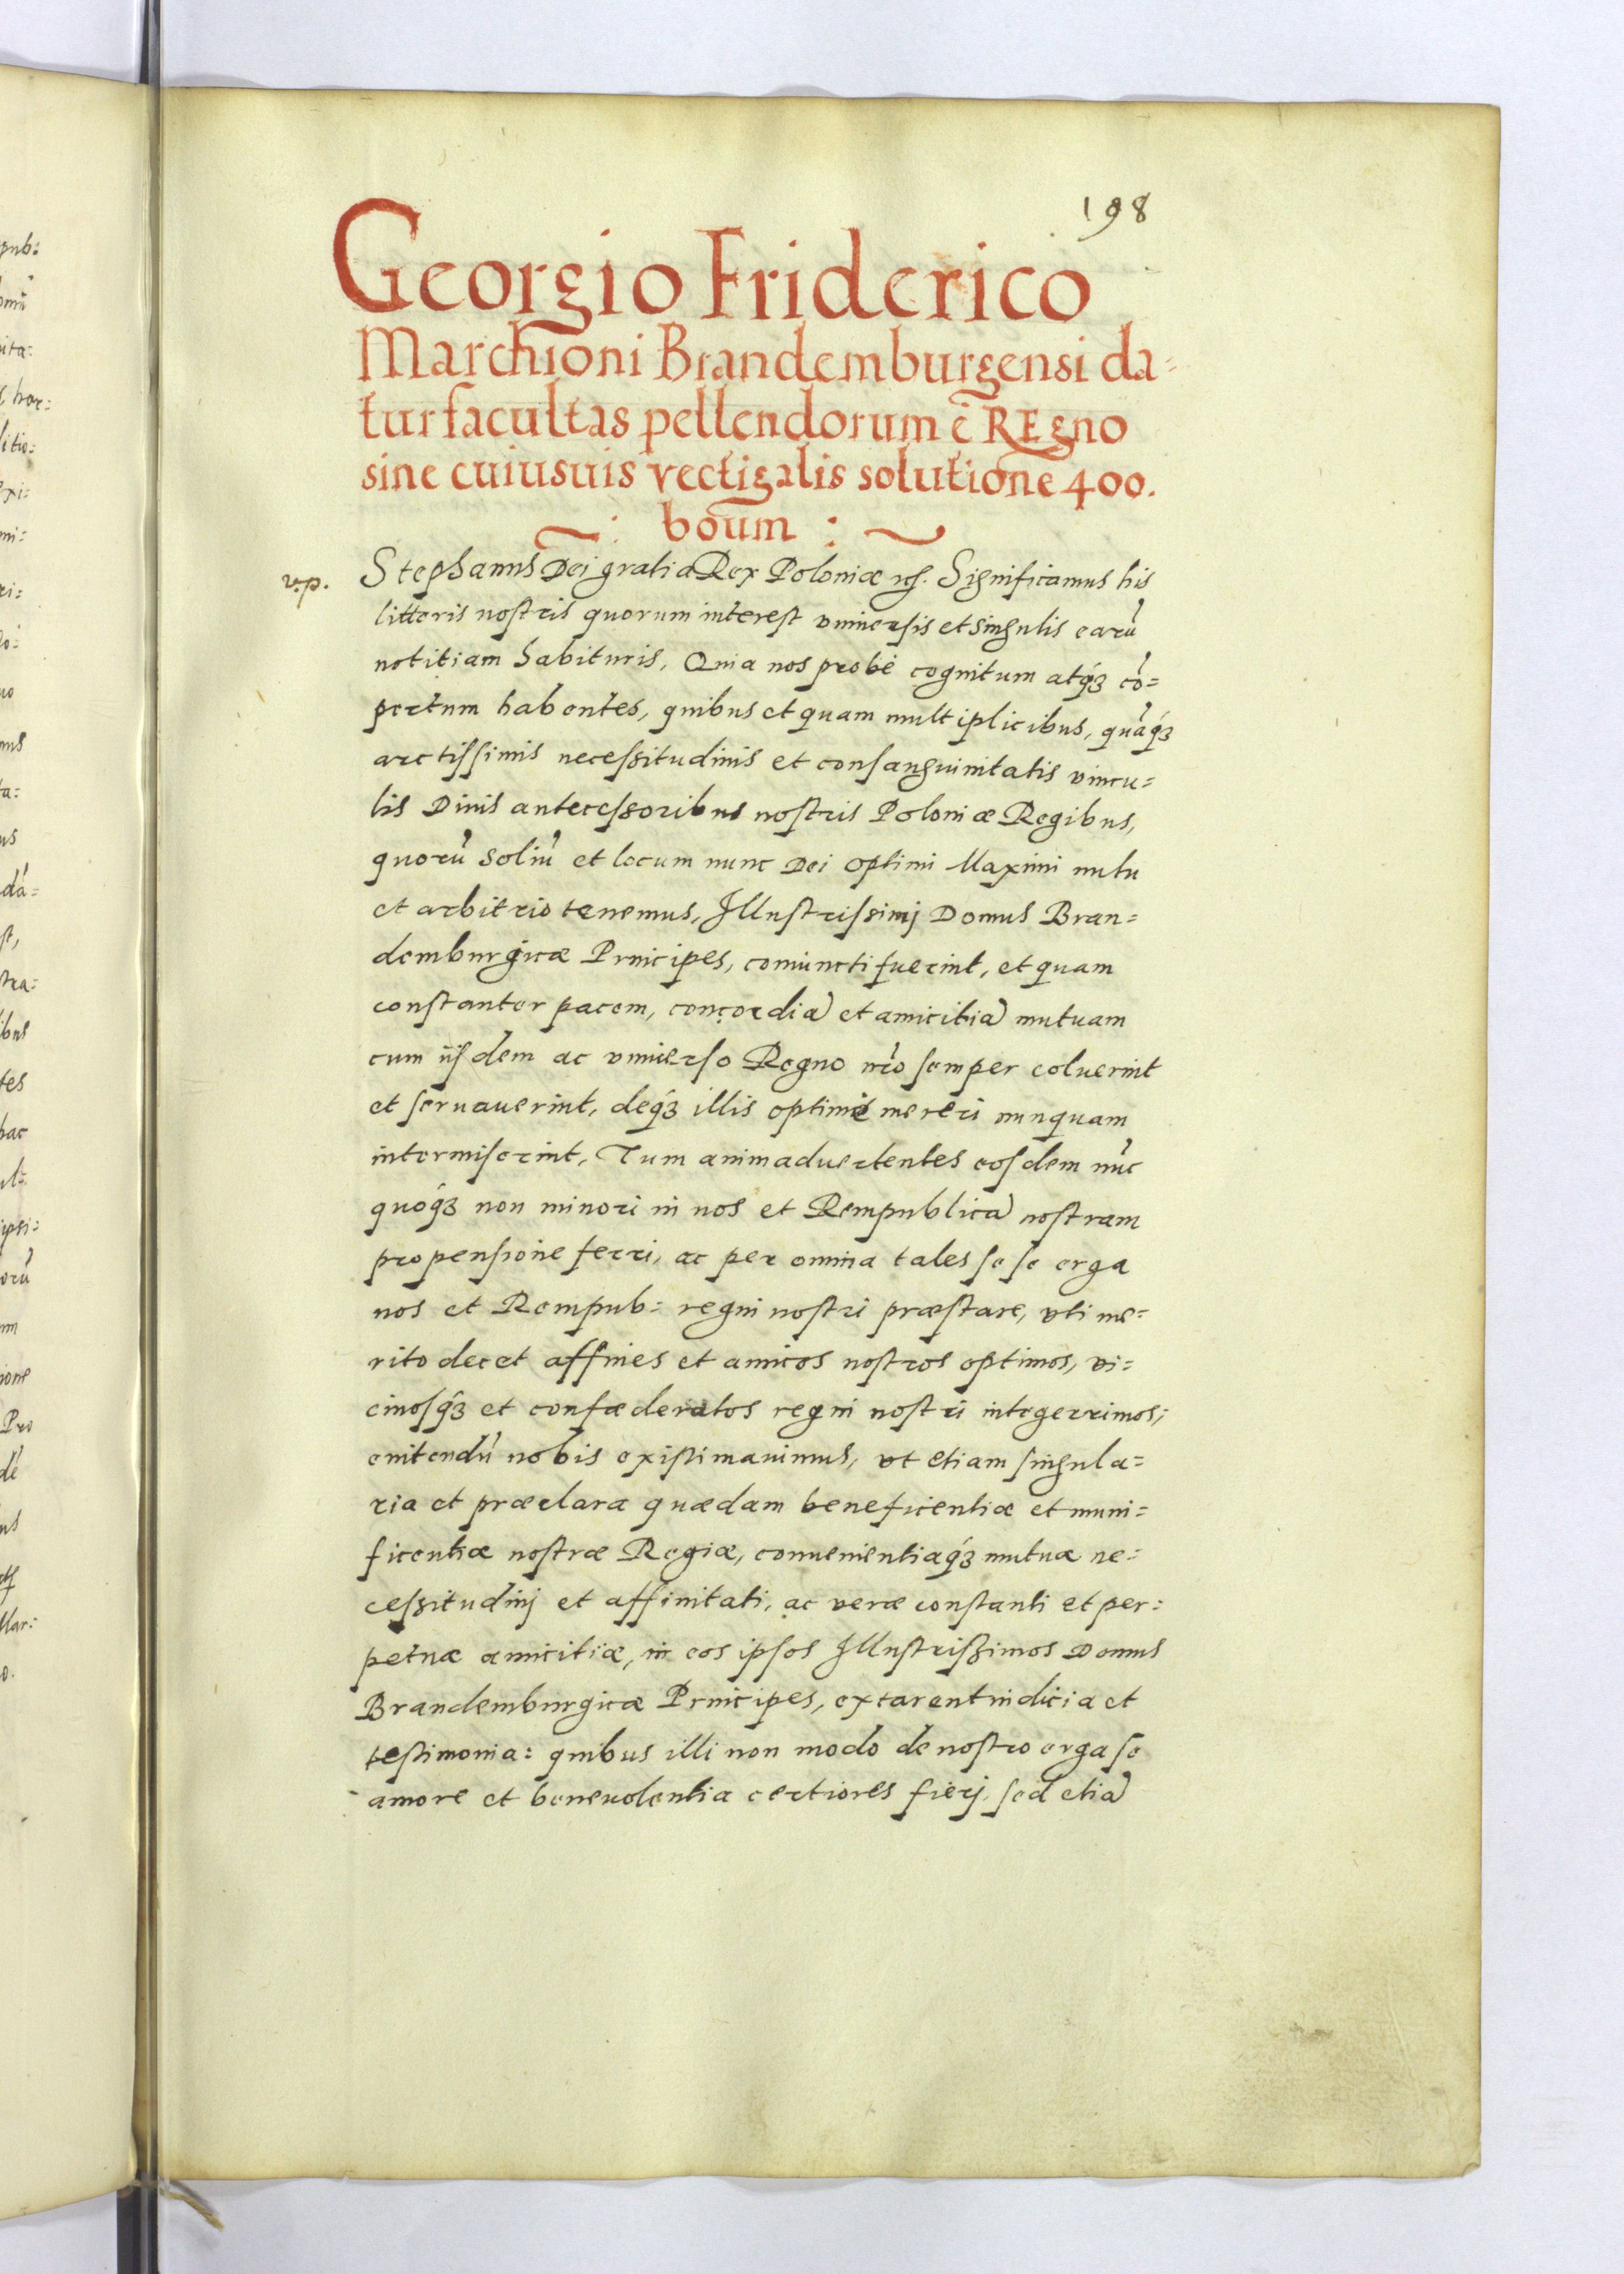 198
Georgio Friderico
Marchioni Brandemburgensi da=
tur facultas pellendorum è REgno
sine cuiusuis vectigalis solutione 400.
boum
v.p.
Stephanus Dei gratia Rex Poloniæ etc. Significamus his
litteris nostris quorum interest vniuersis et singulis earũ
notitiam habituris. Quia nos probè cognitum atq́ꝫ cõ=
pertum habentes, quibus et quam multiplicibus, quãq́ꝫ
arctissimis necessitudinis et consanguinitatis vincu=
lis Diuis antecessoribus nostris Poloniæ Regibus,
quorũ soliũ et locum nunc Dei optimi Maximi nutu
et arbitrio tenemus, Illustrissimj Domus Bran=
demburgicæ Principes, coniuncti fuerint, et quam
constanter pacem, concordiã et amicitiã mutuam
cum ijsdem ac vniuerso Regno nr̃o semper coluerint
et seruauerint, deq́ꝫ illis optimè mereri nunquam
intermiserint, Tum animaduertentes eosdem nũc
quoq́ꝫ non minori in nos et Rempublicã nostram
propensione ferri, ac per omnia tales se se erga
nos et Rempub= regni nostri præstare, vti me=
rito decet affines et amicos nostros optimos, vi=
cinosq́ꝫ et confæderatos regni nostri integerrimos;
enitendũ nobis existimauimus, vt etiam singula=
ria et præclara quædam beneficentiæ et muni=
ficentiæ nostræ Regiæ, conuenientiaq́ꝫ mutuæ ne=
cessitudinj et affinitati, ac veræ constanti et per=
petuæ amicitiæ, in eos ipsos Illustrissimos Domus
Brandemburgicæ Principes, extarent indicia et
testimonia: quibus illi non modo de nostro erga se
amore et beneuolentia certiores fierj, sed etiã